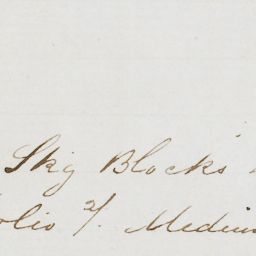 Sky Blocks
olio 2/. Medium